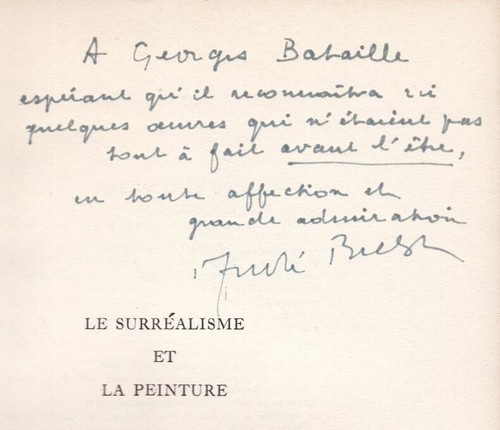 A Georges Bataille
espérant qu'il reconnaîtra ici
quelques œuvres qui n'étaient pas
tout à fait avant l'être,
en toute affection et
grande admiration
André Breton
LE SURRÉALISME
ET
LA PEINTURE